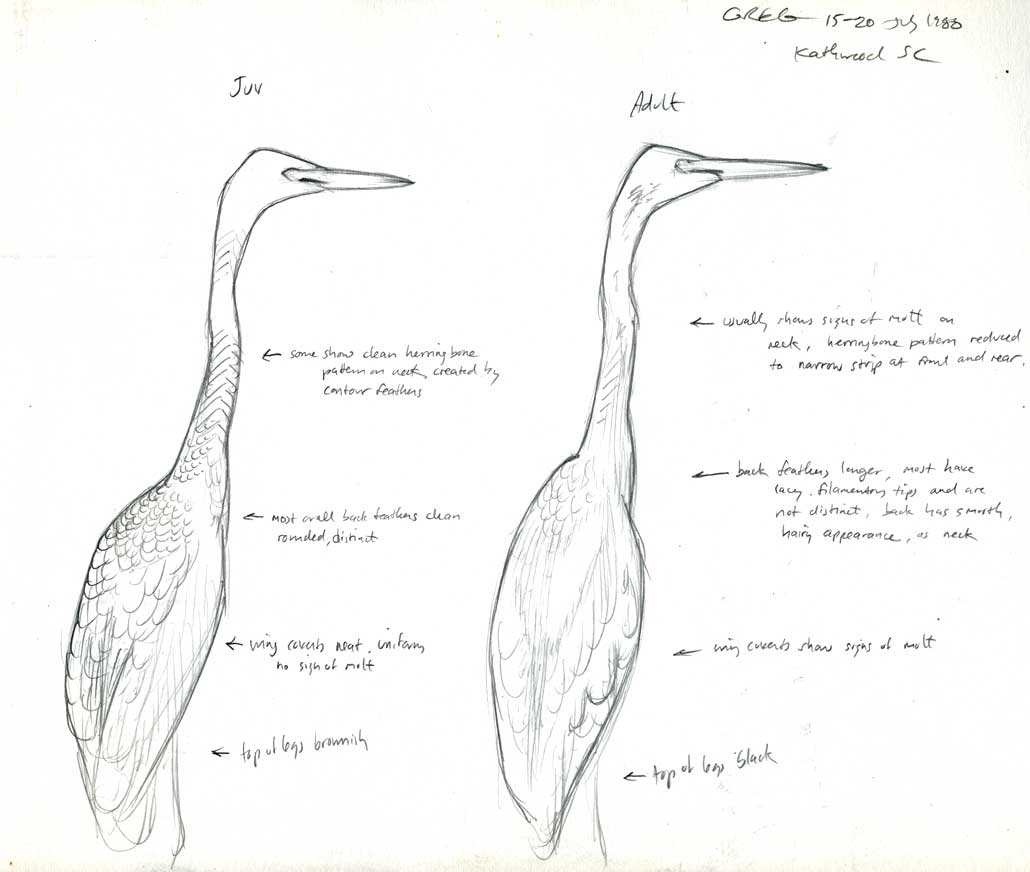 GREG 15-20 July 1988
Kathwood SC
Juv
Adult
← some show clean herringbone
pattern on neck, created by
contour feathers
← most small back feathers clean
rounded, distinct
← wing coverts neat, uniform
no sign of molt
← top of legs brownish
← usually shows signs of molt on
neck, herringbone pattern reduced
to narrow strip at front and rear.
← back feathers longer, most have
lacy, filamentry tips and are
not distinct, back has smooth,
hairy appearance, as neck
← wing coverts show signs of molt
← top of legs black